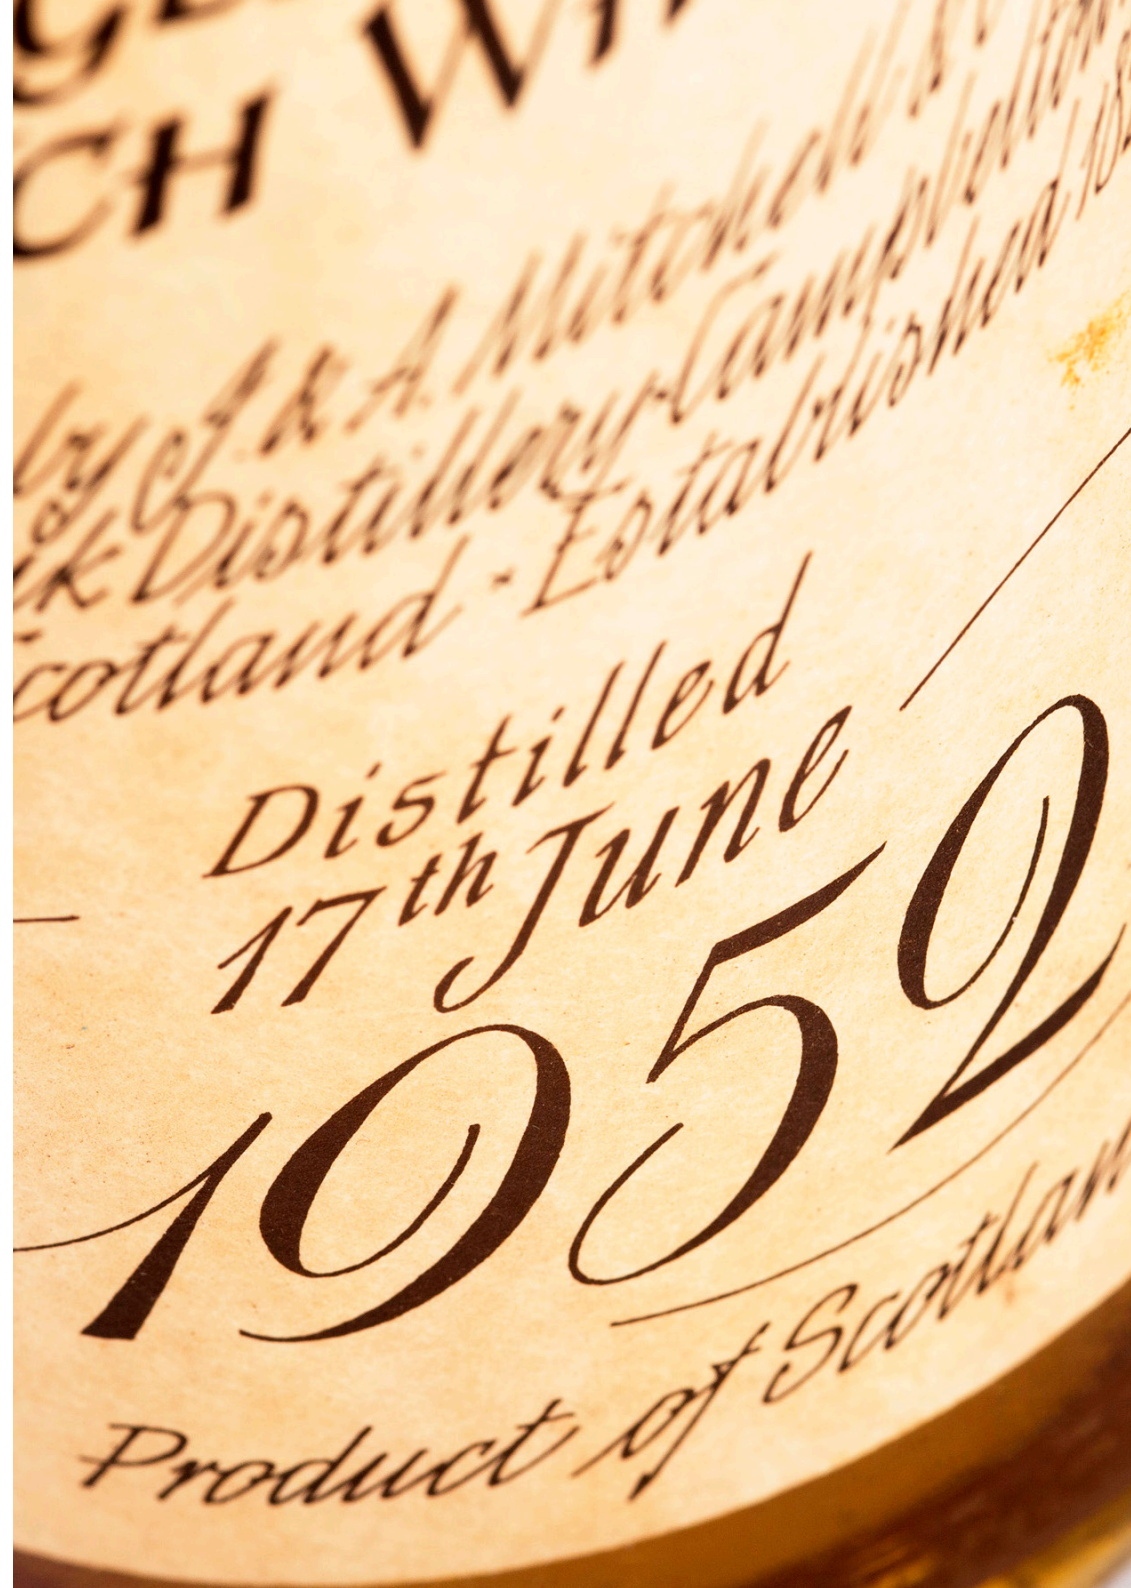 CH WH
by J & A. Mitchell & C
Distillery·Campbeltown
Scotland · Established 182
Distilled
17th June
1952
Product of Scotlan